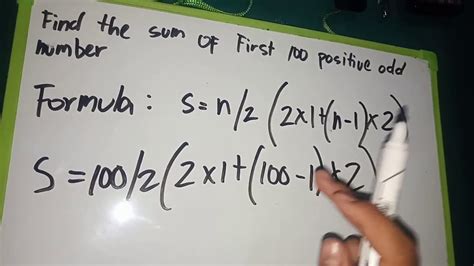 Find the sum of First 100 positive odd
number
Formula: S=n/2 (2x1+(n-1)x2)
S=100/2(2x1+(100-1)+2)